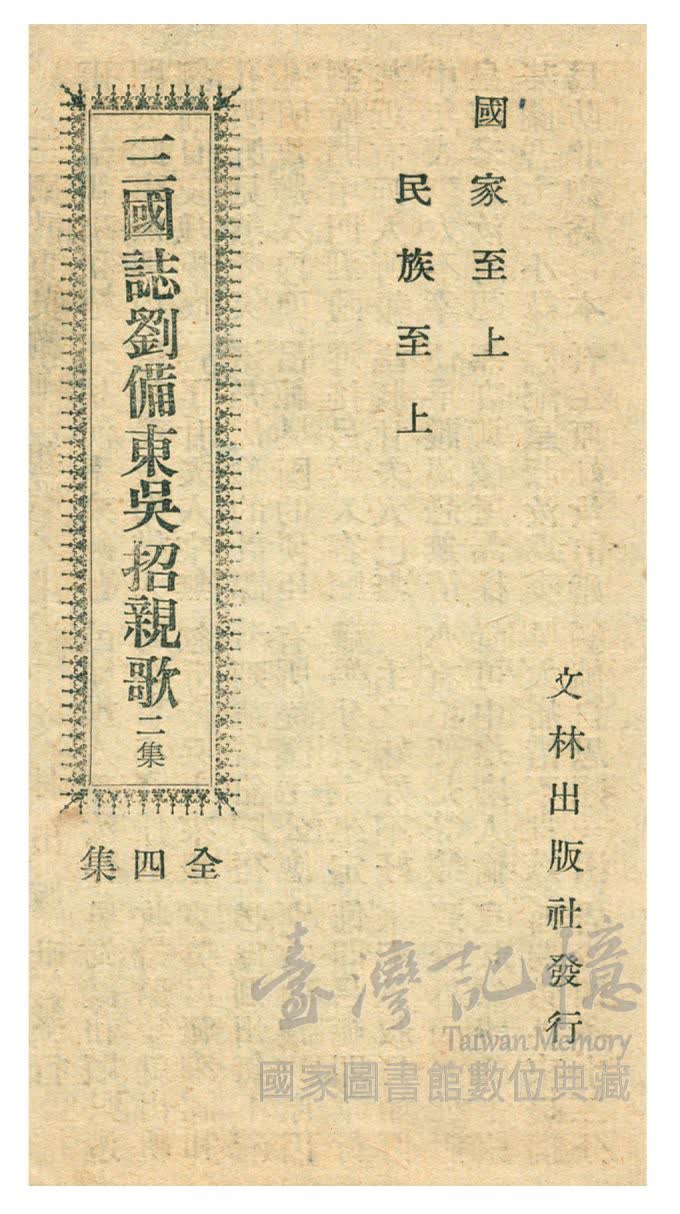 國家至上
民族至上
文林出版社發行
三國誌劉備東吳招親歌 二集
全四集
臺灣記憶
Taiwan Memory
國家圖書館數位典藏